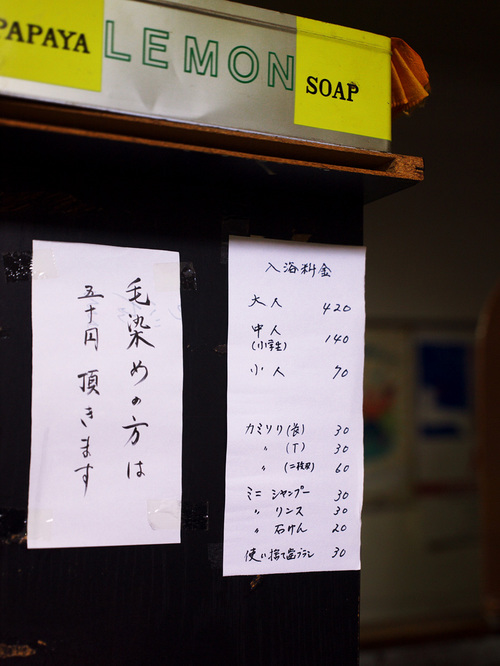 PAPAYA LEMON SOAP
毛染めの方は
五十円 頂きます
入浴料金
大人 420
中人 140
(小学生)
小人 70
カミソリ(袋) 30
〃 (T) 30
〃 (二枚刃) 60
ミニ シャンプー 30
〃 リンス 30
〃 石けん 20
使い捨て歯ブラシ 30